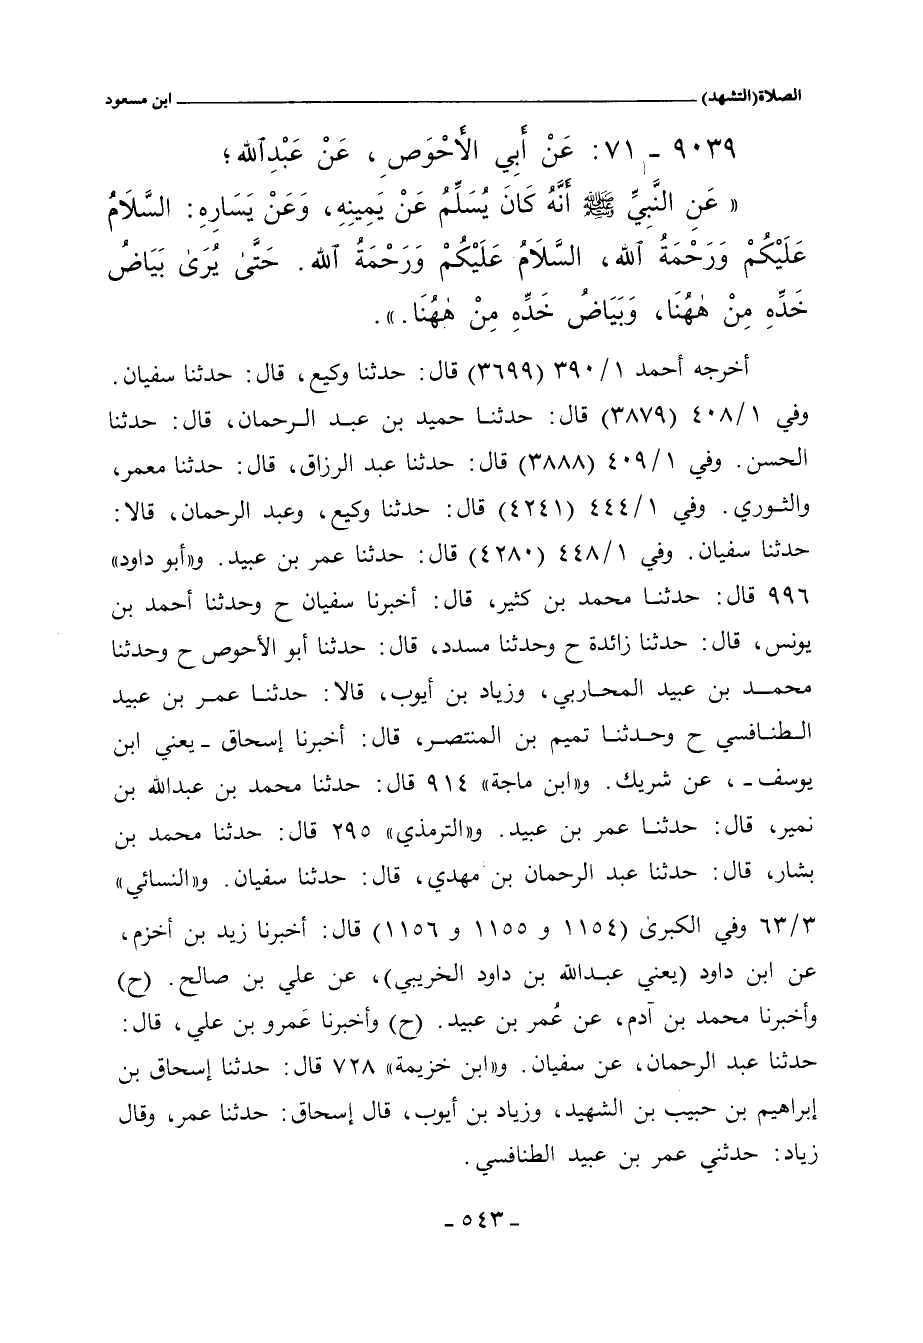 الصلاة (التشهد) ـــــ ابن مسعود
٩٠٣٩ - ٧١: عَنْ أَبِي الأَحْوَصِ، عَنْ عَبْدِاللهِ؛
« عَنِ النَّبِيِّ ﷺ أَنَّهُ كَانَ يُسَلِّمُ عَنْ يَمِينِهِ، وَعَنْ يَسَارِهِ: السَّلَامُ
عَلَيْكُمْ وَرَحْمَةُ اللهِ، السَّلَامُ عَلَيْكُمْ وَرَحْمَةُ اللهِ. حَتَّىٰ يُرَىٰ بَيَاضُ
خَدِّهِ مِنْ هٰهُنَا، وَبَيَاضُ خَدِّهِ مِنْ هٰهُنَا.».
أخرجه أحمد ٣٩٠/١ (٣٦٩٩) قال: حدثنا وكيع، قال: حدثنا سفيان.
وفي ٤٠٨/١ (٣٨٧٩) قال: حدثنا حميد بن عبد الرحمان، قال: حدثنا
الحسن. وفي ٤٠٩/١ (٣٨٨٨) قال: حدثنا عبد الرزاق، قال: حدثنا معمر،
والثوري. وفي ٤٤٤/١ (٤٢٤١) قال: حدثنا وكيع، وعبد الرحمان، قالا:
حدثنا سفيان. وفي ٤٤٨/١ (٤٢٨٠) قال: حدثنا عمر بن عبيد. و«أبو داود»
٩٩٦ قال: حدثنا محمد بن كثير، قال: أخبرنا سفيان ح وحدثنا أحمد بن
يونس، قال: حدثنا زائدة ح وحدثنا مسدد، قال: حدثنا أبو الأحوص ح وحدثنا
محمد بن عبيد المحاربي، وزياد بن أيوب، قالا: حدثنا عمر بن عبيد
الطنافسي ح وحدثنا تميم بن المنتصر، قال: أخبرنا إسحاق - يعني ابن
يوسف -، عن شريك. و«ابن ماجة» ٩١٤ قال: حدثنا محمد بن عبدالله بن
نمير، قال: حدثنا عمر بن عبيد. و«الترمذي» ٢٩٥ قال: حدثنا محمد بن
بشار، قال: حدثنا عبد الرحمان بن مهدي، قال: حدثنا سفيان. و«النسائي»
٦٣/٣ وفي الكبرىٰ (١١٥٤ و ١١٥٥ و ١١٥٦) قال: أخبرنا زيد بن أخزم،
عن ابن داود (يعني عبدالله بن داود الخريبي)، عن علي بن صالح. (ح)
وأخبرنا محمد بن آدم، عن عُمر بن عبيد. (ح) وأخبرنا عَمرو بن علي، قال:
حدثنا عبد الرحمان، عن سفيان. و«ابن خزيمة» ٧٢٨ قال: حدثنا إسحاق بن
إبراهيم بن حبيب بن الشهيد، وزياد بن أيوب، قال إسحاق: حدثنا عمر، وقال
زياد: حدثني عمر بن عبيد الطنافسي.
- ٥٤٣ -